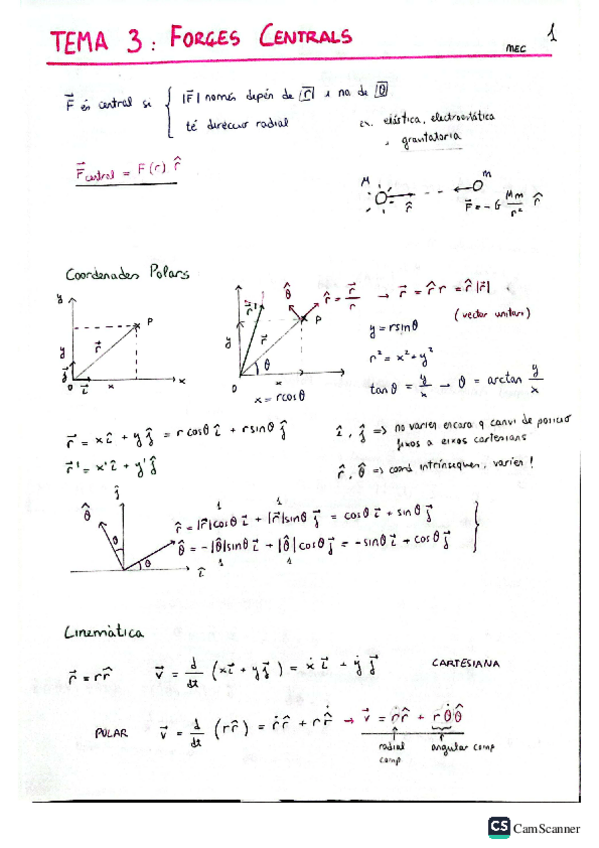 TEMA 3: FORCES CENTRALS
MEC
1
F⃗ és central si { |F⃗| només depèn de |r⃗| i no de |θ|
té direcció radial
ex. elàstica, electrostàtica, gravitatoria
F⃗central = F(r) r̂
M r̂ m
F⃗ = -G Mm/r² r̂
Coordenades Polars
y P r⃗ y j⃗ 0 i⃗ x x
r⃗' θ̂ r⃗ P y θ 0 x
r̂ = r⃗/r → r⃗ = r̂ r = r̂ |r⃗|
(vector unitari)
x = rcosθ
y = rsinθ
r² = x² + y²
tanθ = y/x → θ = arctan y/x
r⃗ = xî + yĵ = rcosθ î + rsinθ ĵ
r⃗' = x'î + y'ĵ
î, ĵ => no varien encara q canvi de posició
fixos a eixos cartesians
r̂, θ̂ => coord intrínseques, varien!
ĵ θ̂ θ θ î
1 1
r̂ = |r̂|cosθ i⃗ + |r̂|sinθ j⃗ = cosθ i⃗ + sinθ j⃗
θ̂ = -|θ̂|sinθ i⃗ + |θ̂|cosθ j⃗ = -sinθ i⃗ + cosθ j⃗
1 1
Cinemàtica
r⃗ = rr̂
v⃗ = d/dt (xi⃗ + yj⃗) = ẋ i⃗ + ẏ j⃗
CARTESIANA
POLAR
v⃗ = d/dt (rr̂) = ṙr̂ + r r̂̇ → v⃗ = ṙr̂ + rθ̇θ̂
radial comp
angular comp
CS CamScanner